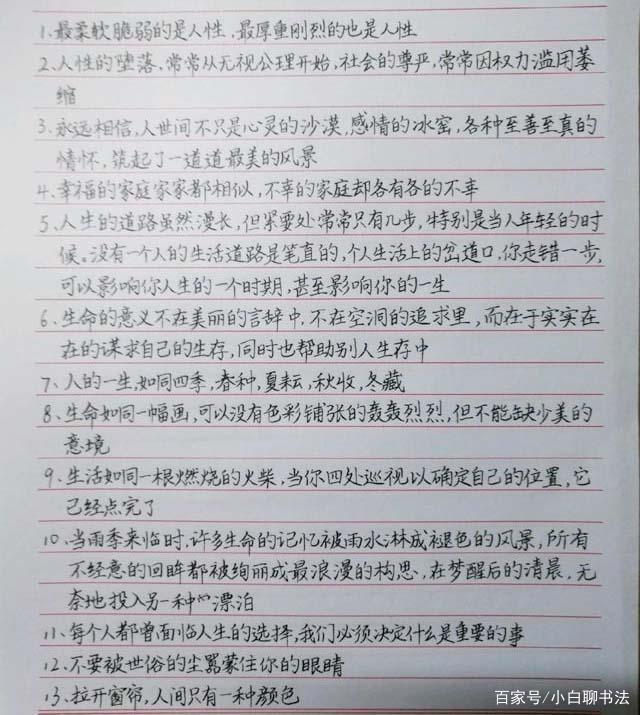 1、最柔软脆弱的是人性、最厚重刚烈的也是人性
2、人性的堕落、常常从无视公理开始,社会的尊严,常常因权力滥用萎
缩
3、永远相信,人世间不只是心灵的沙漠,感情的冰窑,各种至善至真的
情怀,筑起了一道道最美的风景
4、幸福的家庭家家都相似,不幸的家庭却各有各的不幸
5、人生的道路虽然漫长,但紧要处常常只有几步,特别是当人年轻的时
候。没有一个人的生活道路是笔直的,个人生活上的岔道口,你走错一步,
可以影响你人生的一个时期,甚至影响你的一生
6、生命的意义不在美丽的言辞中,不在空洞的追求里,而在于实实在
在的谋求自己的生存,同时也帮助别人生存中
7、人的一生,如同四季,春种,夏耘,秋收,冬藏
8、生命如同一幅画,可以没有色彩铺张的轰轰烈烈,但不能缺少美的
意境
9、生活如同一根燃烧的火柴,当你四处巡视以确定自己的位置,它
已经点完了
10、当雨季来临时,许多生命的记忆被雨水淋成褪色的风景,所有
不经意的回眸都被绚丽成最浪漫的构思,在梦醒后的清晨,无
奈地投入另一种心漂泊
11、每个人都曾面临人生的选择,我们必须决定什么是重要的事
12、不要被世俗的尘嚣蒙住你的眼睛
13、拉开窗帘,人间只有一种颜色
百家号/小白聊书法